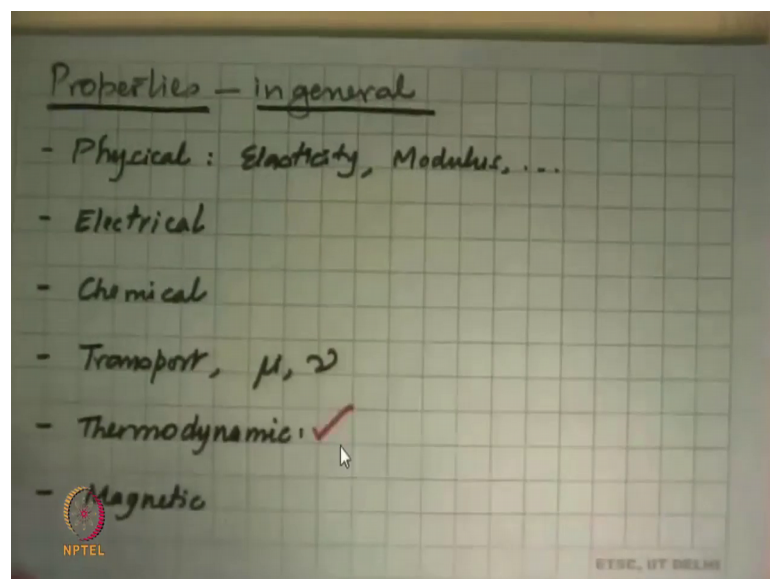 Properties - in general
- Physical : Elasticity, Modulus, ...
- Electrical
- Chemical
- Transport, μ, ν
- Thermodynamic: ✓
- Magnetic
NPTEL
ETSC, IIT DELHI